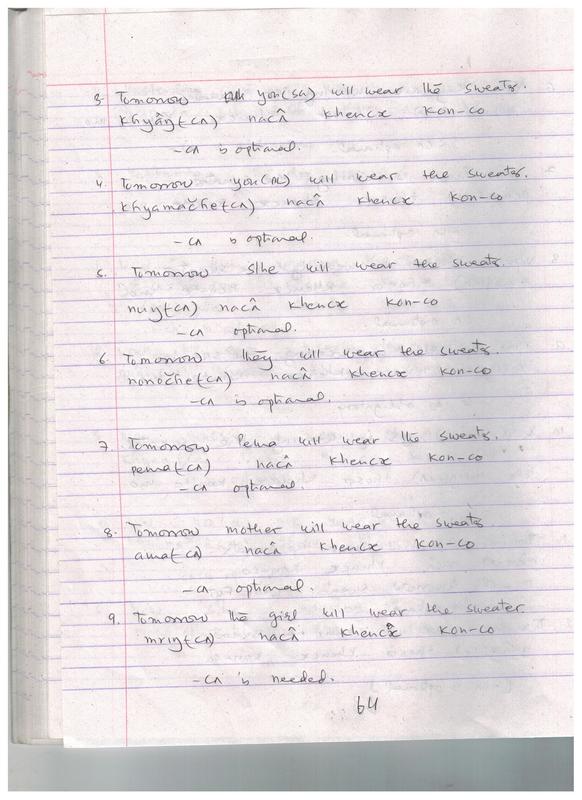 3. Tomorrow you (SG) will wear the sweats.
khyâŋ(-cʌ) nacʌ̂ khencæ kon-co
-cʌ is optional.
4. Tomorrow you (PL) will wear the sweats.
khyamačhe(-cʌ) nacʌ̂ khencæ kon-co
-cʌ is optional.
5. Tomorrow S/he will wear the sweats.
nuŋ(-cʌ) nacʌ̂ khencæ kon-co
-cʌ optional.
6. Tomorrow they will wear the sweats.
nonočhe(-cʌ) nacʌ̂ khencæ kon-co
-cʌ is optional.
7. Tomorrow Pema will wear the sweats.
pema(-cʌ) nacʌ̂ khencæ kon-co
-cʌ optional.
8. Tomorrow mother will wear the sweats
ama(-cʌ) nacʌ̂ khencæ kon-co
-cʌ optional.
9. Tomorrow the girl will wear the sweater.
mriŋ(-cʌ) nacʌ̂ khencæ kon-co
-cʌ is needed.
64